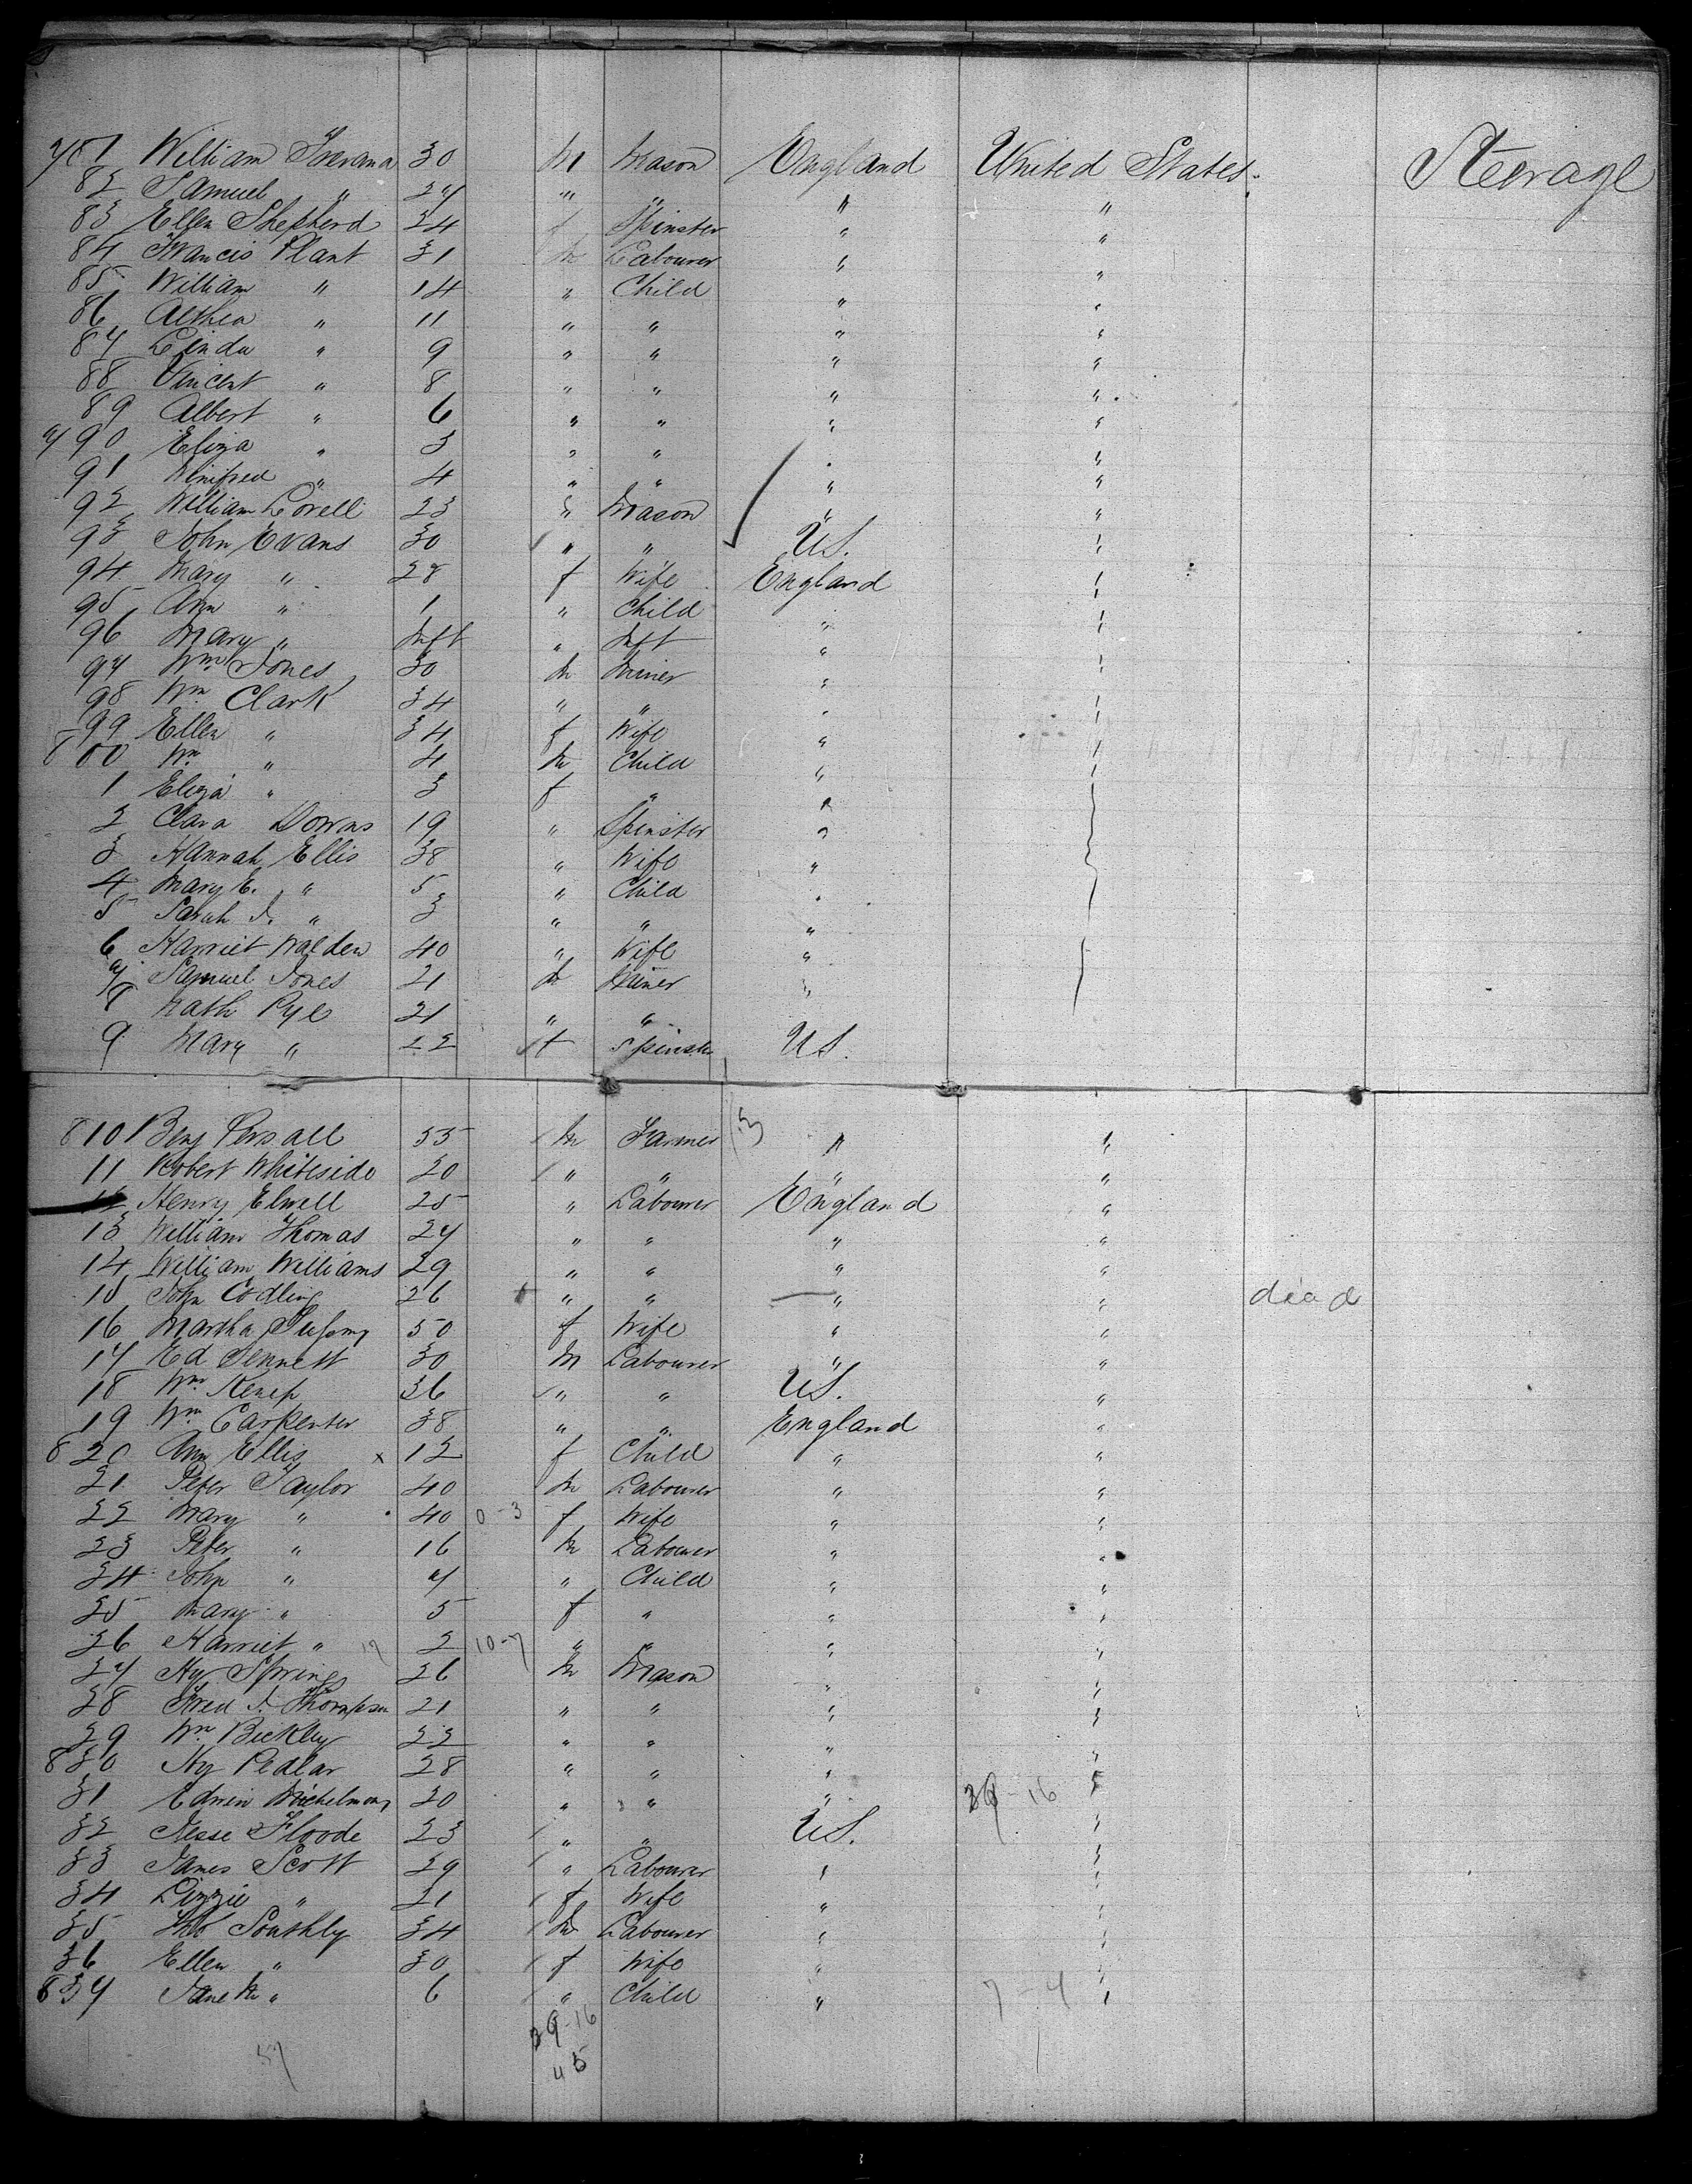 781 William Trevana 30 M Mason England United States. Steerage
82 Samuel " 27 " " " "
83 Ellen Shepherd 24 f Spinster " "
84 Francis Plant 31 m Labourer " "
85 William " 14 " Child " "
86 Althea " 11 " " " "
87 Linda " 9 " " " "
88 Vincent " 8 " " " "
89 Albert " 6 " " " "
790 Eliza " 3 " " " "
91 Winifred " 4 " " " "
92 William Lovell 23 " Mason " "
93 John Evans 30 " " U.S. "
94 Mary " 28 f Wife England "
95 Ann " 1 " Child " "
96 Mary " Inft " Inft " "
97 Wm Jones 30 m Miner " "
98 Wm Clark 34 " " " "
99 Ellen " 34 f Wife " "
800 Wm " 4 m Child " "
1 Eliza " 3 f " " "
2 Clara Downs 19 " Spinster " "
3 Hannah Ellis 38 " Wife " "
4 Mary E. " 5 " Child " "
5 Sarah J. " 3 " " " "
6 Harriet Walden 40 " Wife " "
7 Samuel Jones 21 m Miner " "
8 Nath Pye 21 " " "
9 Mary " 22 f Spinster U.S.
810 Benj Persall 55 m Farmer " "
11 Robert Whiteside 20 " " " "
12 Henry Elwell 25 " Labourer England "
13 William Thomas 27 " " " "
14 William Williams 29 " " " "
15 John Codling 26 " " " " dead
16 Martha 50 f Wife " "
17 Ed Jennett 30 M Labourer " "
18 Wm Kemp 36 " " U.S. "
19 Wm Carpenter 38 " " England "
820 Ann Ellis x 12 f Child " "
21 Peter Taylor 40 m Labourer " "
22 Mary " 40 0-3 f Wife " "
23 Peter " 16 m Labourer " "
24 John " 7 " Child " "
25 Mary " 5 f " " "
26 Harriet " 17 2 10-7 " " " "
27 Hy Spring 26 m Mason " "
28 Fred J. Thompson 21 " " " "
29 Wm Bickley 22 " " " "
830 Hy Pedlar 28 " " " "
31 Edwin Michelmore 20 " " " 39-16 "
32 Jesse Floode 23 " " U.S. "
33 James Scott 29 " Labourer " "
34 Lizzie " 21 f Wife " "
35 Tho Southly 34 m Labourer " "
36 Ellen " 30 f Wife " "
837 Jane M " 6 " Child " 7-4 "
39-16
57 45